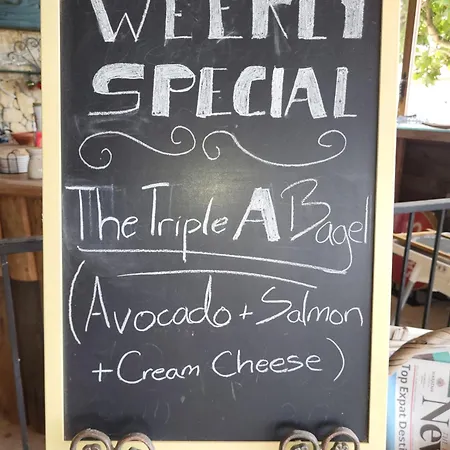 WEEKLY
SPECIAL
The Triple A Bagel
(Avocado + Salmon
+ Cream Cheese)
Top Expat Desti